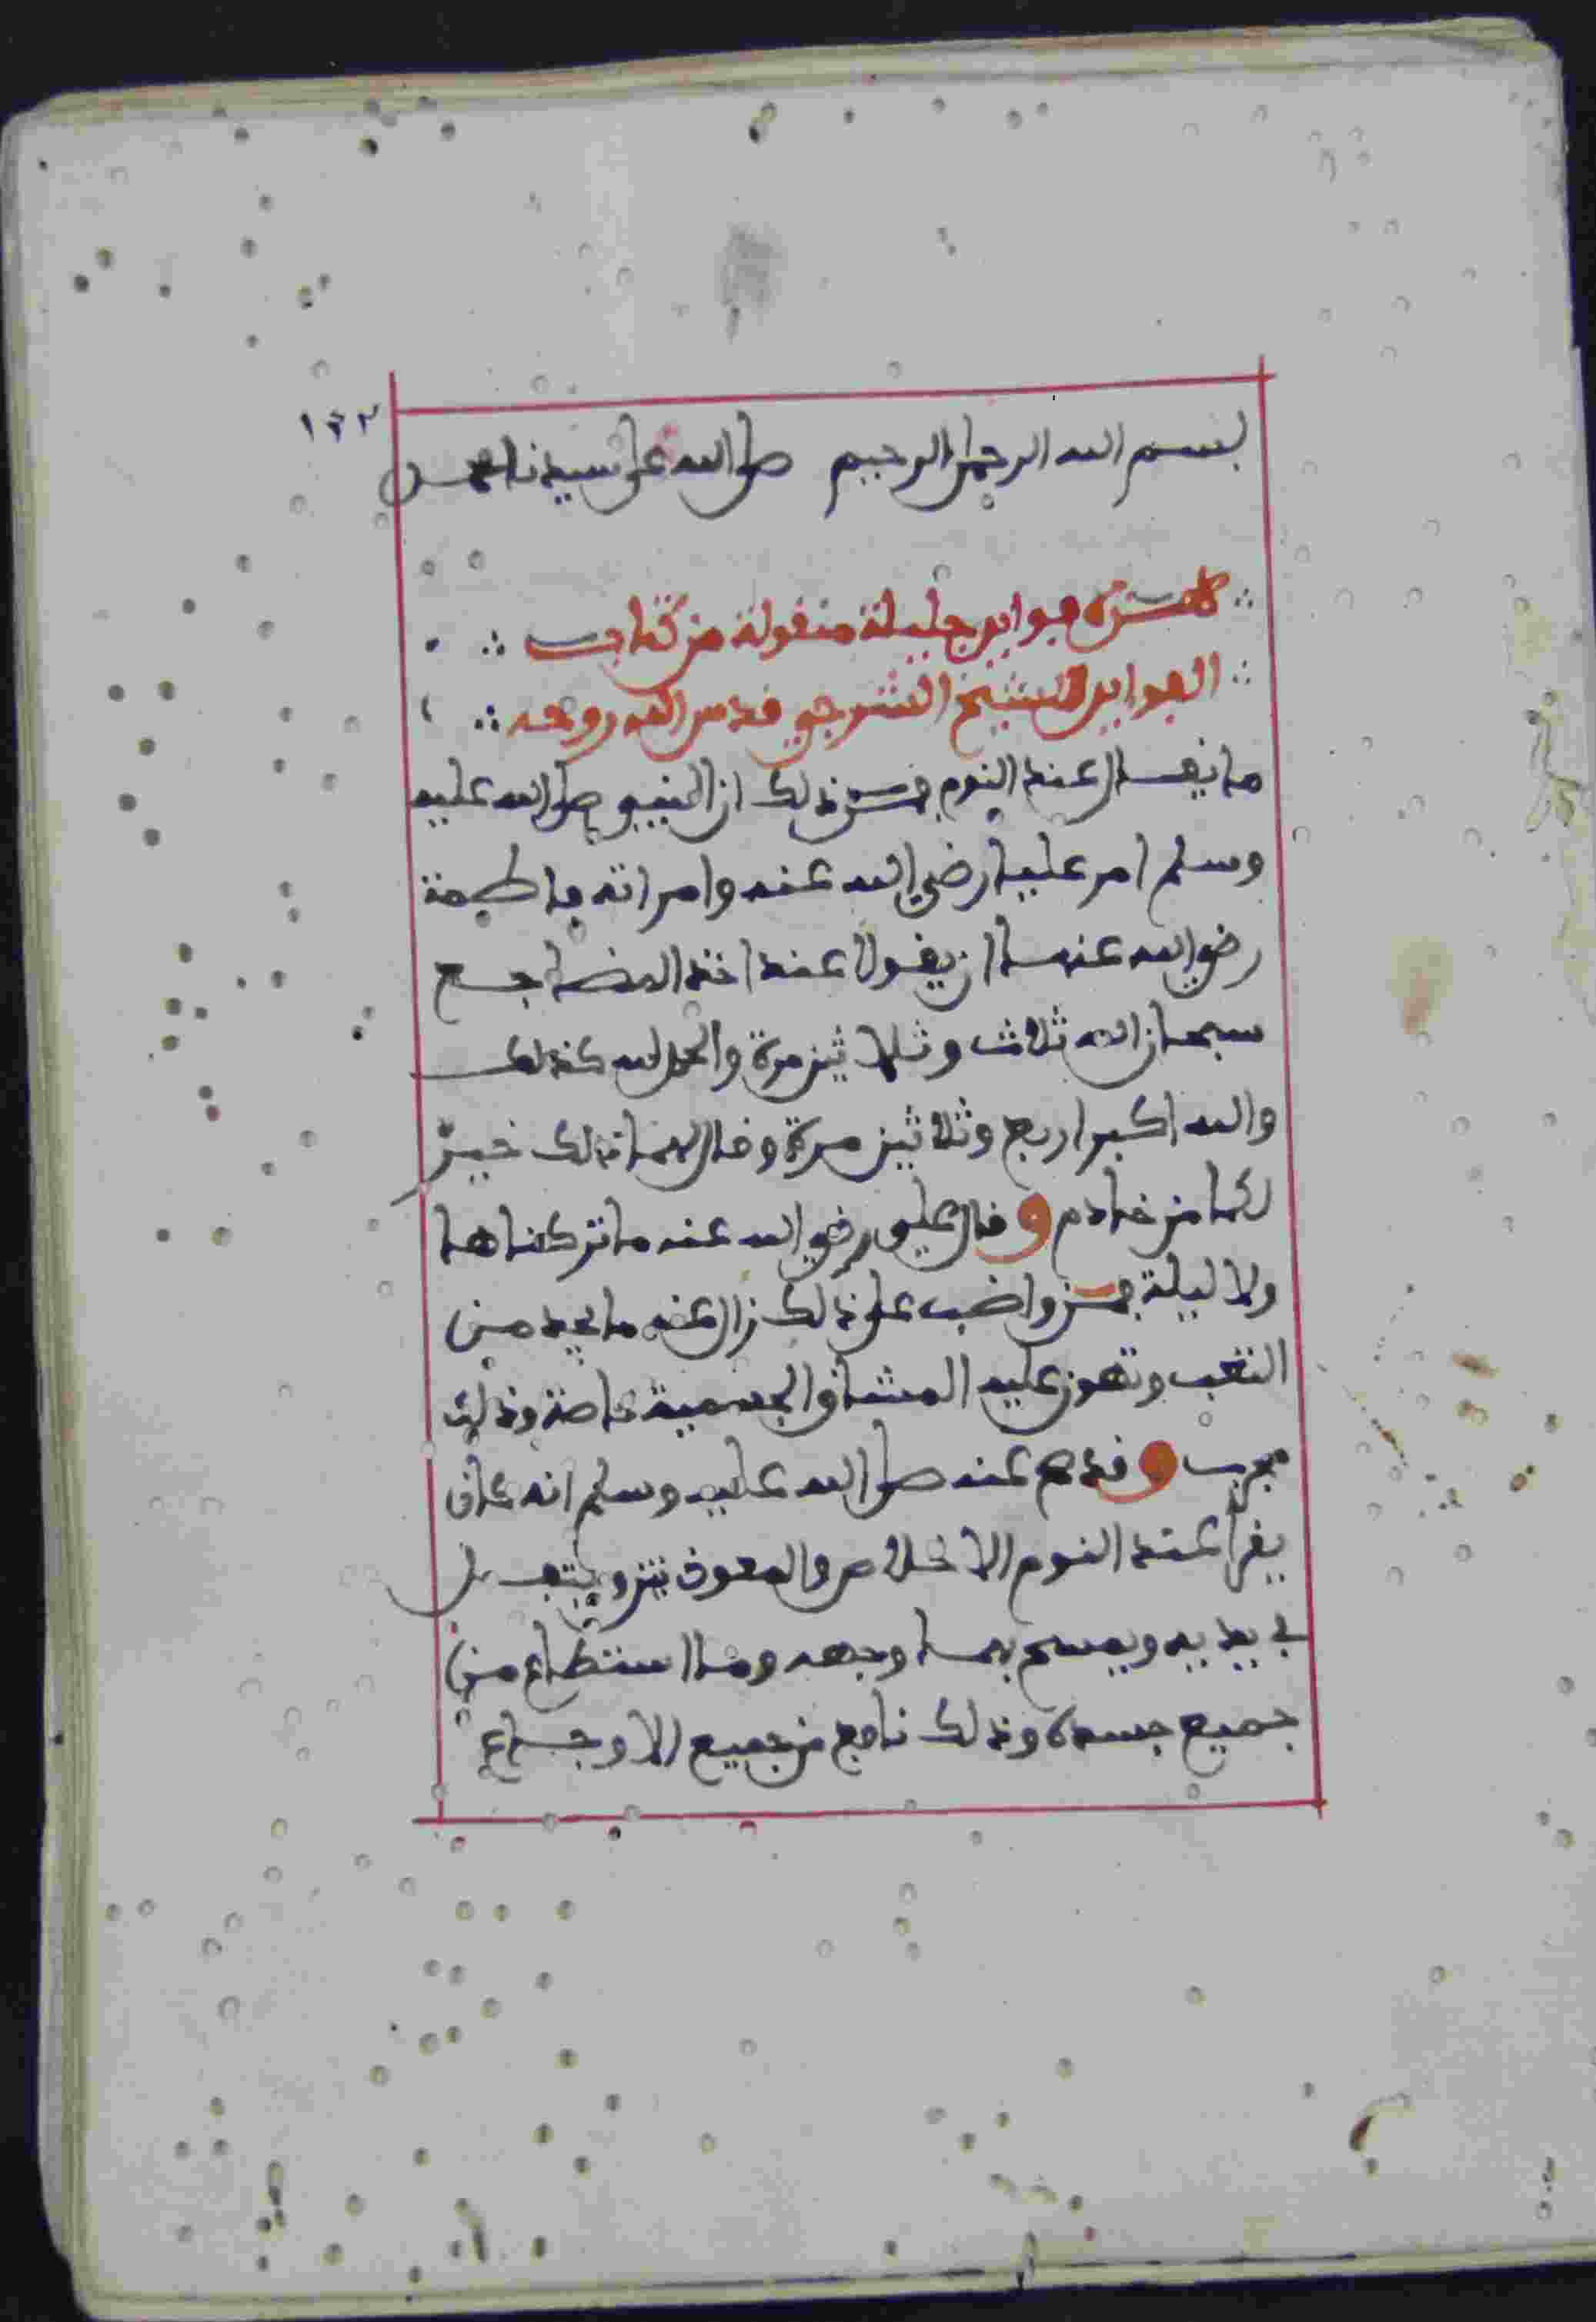 ١٣٢
بسم الله الرحمان الرحيم صلى الله على سيدنا محمد
هذه فوايد جليلة منقولة من كتاب
الفوايد للشيخ الشرجي قدس الله روحه
ما يقال عند النوم فمن ذلك ان النبي صلى الله عليه
وسلم امر عليا رضي الله عنه وامراته فاطمة
رضي الله عنها ان يقولا عند اخذ المضاجع
سبحان الله ثلاث وثلاثين مرة والحمد لله كذلك
والله اكبر اربع وثلاثين مرة وقال لهما ذلك خير
لكما من خادم وقال علي رضي الله عنه ما تركناها
ولا ليلة فمن واضب على ذلك زال عنه ما يجد من
التعب وتهون عليه المشاق الجسمية خاصة وذلك
مجرب وقد صح عنه صلى الله عليه وسلم انه كان
يقرأ عند النوم الاخلاص والمعوذتين ويتفل
في يديه ويمسح بهما وجهه وما استطاع من
جميع جسده وذلك نافع من جميع الاوجاع